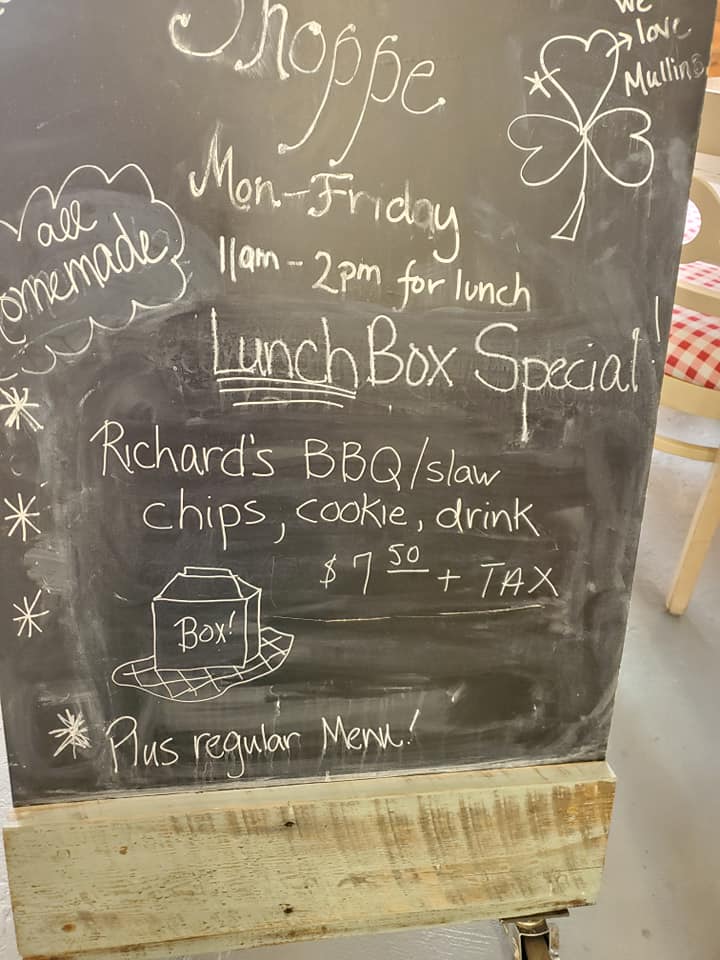 Shoppe
we
love
Mullins
Mon-Friday
all
omemade
11am - 2pm for lunch
Lunch Box Special!
Richard's BBQ/slaw
chips, cookie, drink
$7 50 + TAX
Box!
Plus regular Menu!